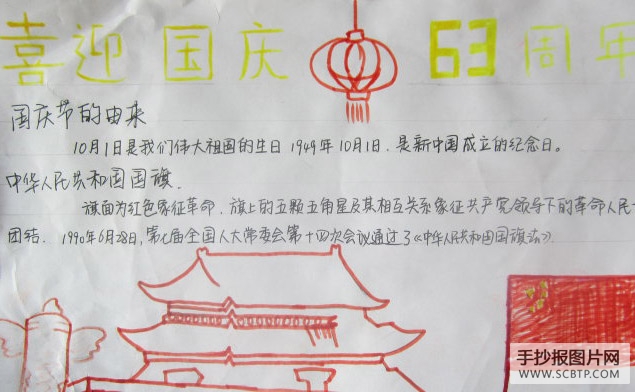 喜迎国庆 63周年
国庆节的由来
10月1日是我们伟大祖国的生日 1949年10月1日,是新中国成立的纪念日。
中华人民共和国国旗.
旗面为红色象征革命,旗上的五颗五角星及其相互关系象征共产党领导下的革命人民
团结. 1990年6月28日,第七届全国人大常委会第十四次会议通过了《中华人民共和国国旗法》.
手抄报图片网
WWW.SCBTP.COM